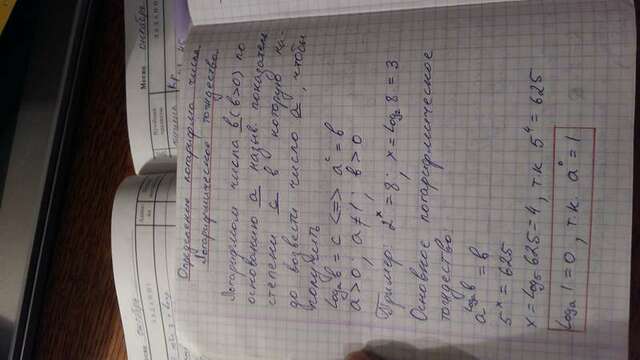 Месяц октябрь
ЗАДАНИЕ
Месяц октябрь
ЗАДАНИ
Определение логарифма числа.
Логарифмическое тождество
Логарифмом числа b (b>0) по
основанию a назыв. показатель
степени c в которую на-
до возвести число a, чтобы
получить
log_a b = c <=> a^c = b
a>0; a≠1; b>0
Пример: 2^x = 8; x = log_2 8 = 3
Основное логарифмическое
тождество:
a^(log_a b) = b
5^x = 625
x = log_5 625 = 4, т.к 5^4 = 625
log_a 1 = 0, т.к. a^0 = 1